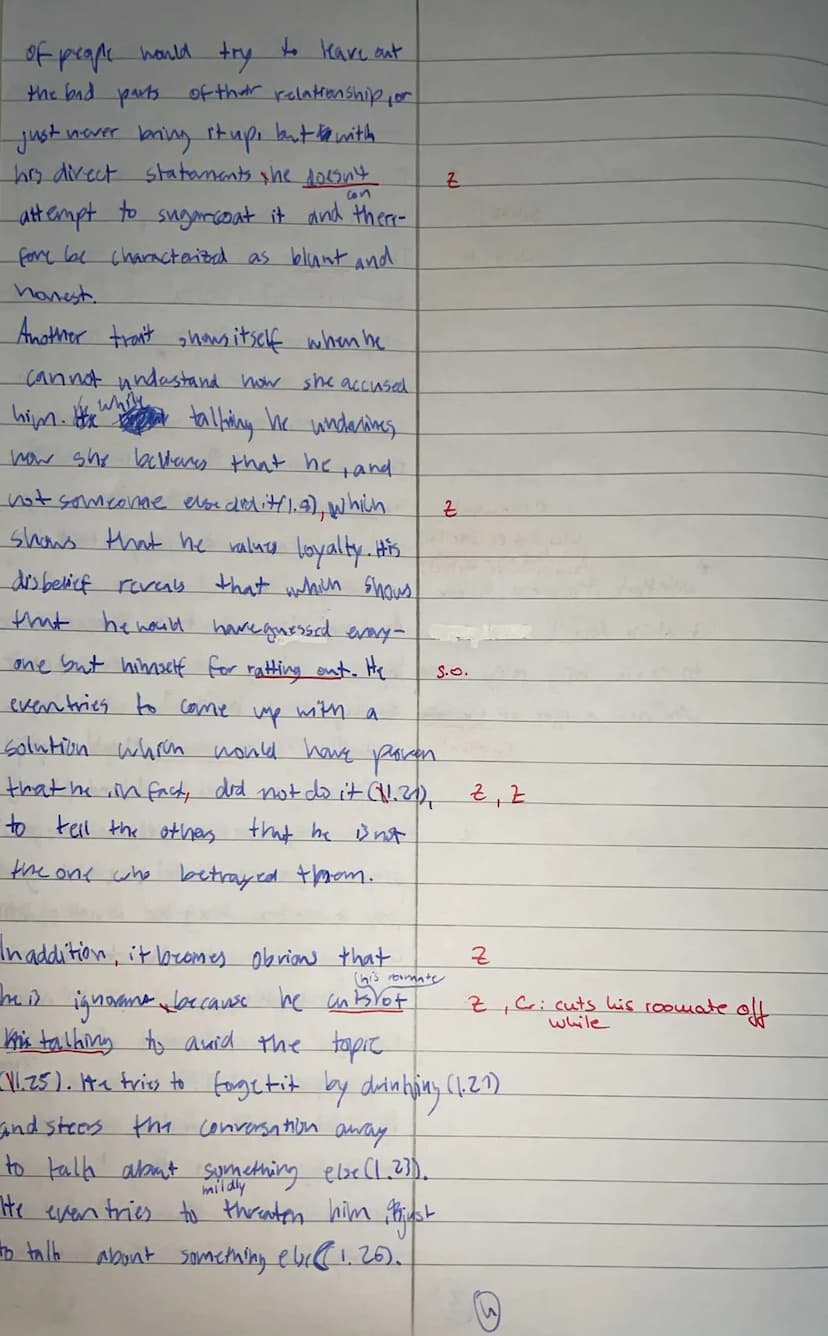 of people would try to leave out
the bad parts of their relationship, or
just never bring it up, but with
his direct statements, he doesn't Z
can
attempt to sugarcoat it and there-
fore be characterized as blunt and
honest.
Another trait shows itself when he
cannot undastand how she accused
while
him. He talking he underlines,
how she believes that he, and
not someone else did it (l.9), which Z
shows that he values loyalty. His
disbelief reveals that which shows
that he would have guessed every-
one but himself for ratting out. He s.o.
even tries to come up with a
solution which would have proven
that he, in fact, did not do it (l.21), Z, Z
to tell the others that he is not
the one who betrayed them.
In addition, it becomes obvious that Z
his roomate
he is ignorant, because he cuts of Z, Gr: cuts his roomate off
while
talking to avoid the topic
(l.25). He tries to forget it by drinking (l.27)
and steers the conversation away
to talk about something else (l.23).
mildly
He even tries to threaten him, just
to talk about something else (l.26).
4